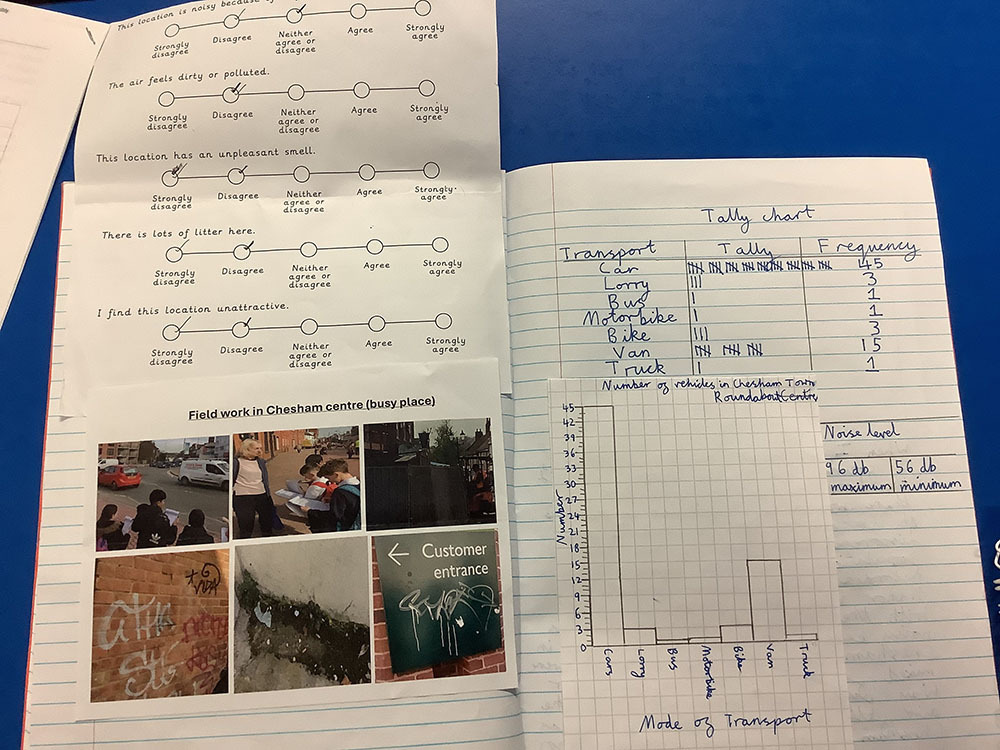 This location is noisy because of
Strongly disagree Disagree Neither agree or disagree Agree Strongly agree
The air feels dirty or polluted.
Strongly disagree Disagree Neither agree or disagree Agree Strongly agree
This location has an unpleasant smell.
Strongly disagree Disagree Neither agree or disagree Agree Strongly agree
There is lots of litter here.
Strongly disagree Disagree Neither agree or disagree Agree Strongly agree
I find this location unattractive.
Strongly disagree Disagree Neither agree or disagree Agree Strongly agree
Field work in Chesham centre (busy place)
VIDA
Customer
entrance
Tally chart
Transport Tally Frequency
Car 45
Lorry 3
Bus 1
Motorbike 1
Bike 3
Van 15
Truck 1
Number of vehicles in Chesham Town
Roundabout Centre
45
42
39
36
33
30
27
24
21
18
15
12
9
6
3
0
Number
Cars Lorry Bus Motorbike Bike Van Truck
Mode of Transport
Noise level
96 db 56 db
maximum minimum